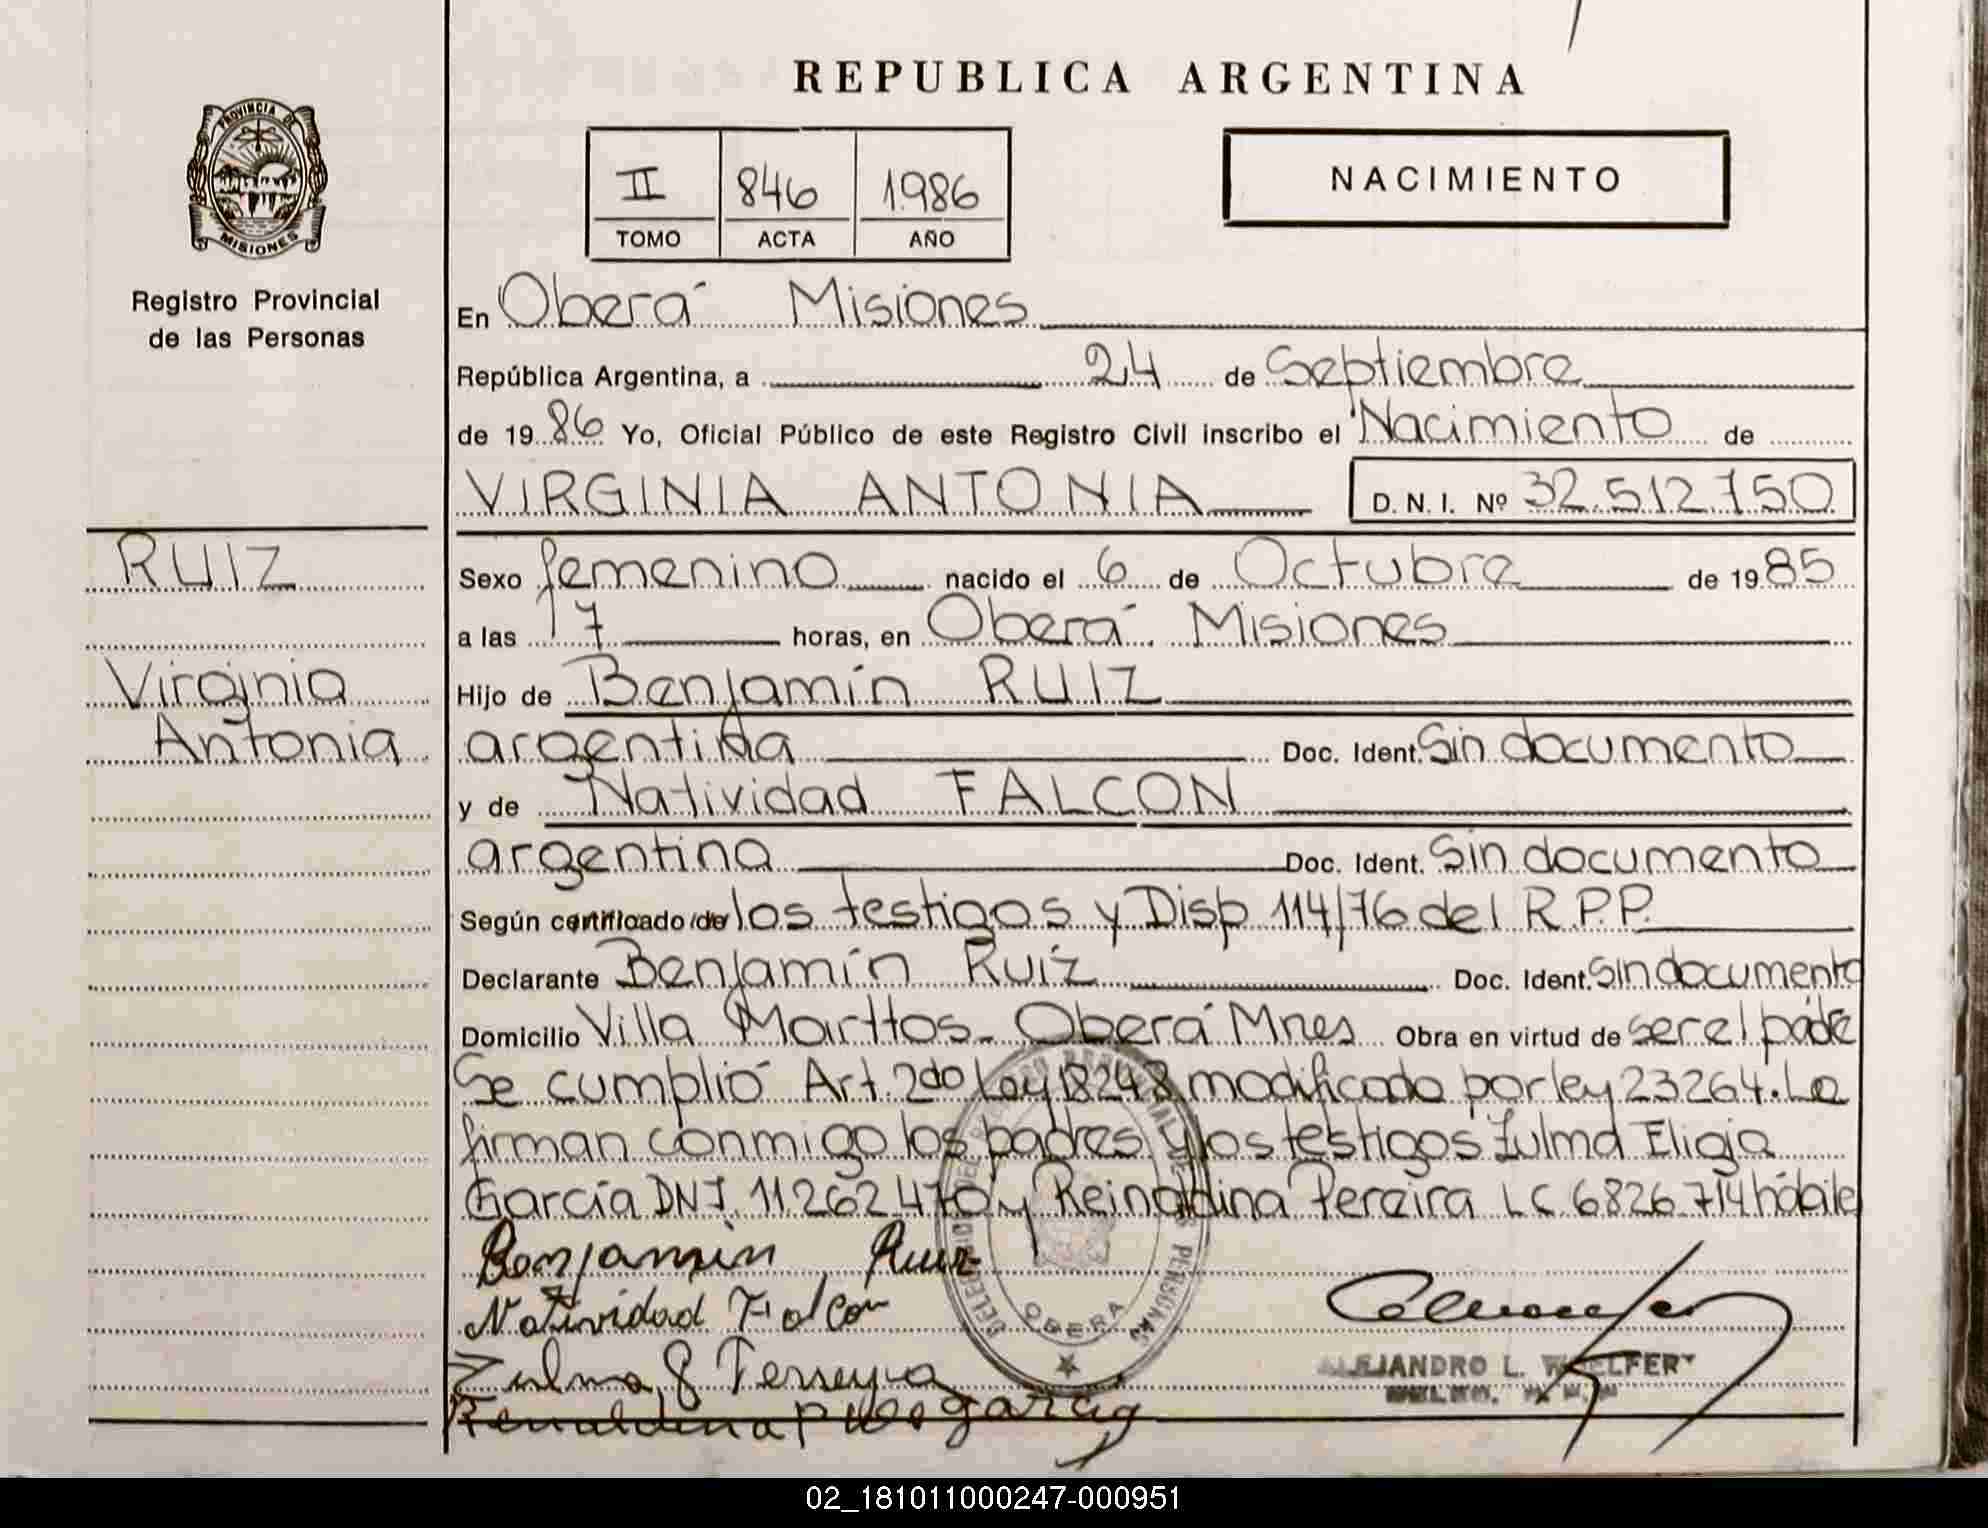 REPUBLICA ARGENTINA
PROVINCIA DE
MISIONES
Registro Provincial
de las Personas
II 846 1986
TOMO ACTA AÑO
NACIMIENTO
En Oberá Misiones
República Argentina, a 24 de Septiembre
de 1986 Yo, Oficial Público de este Registro Civil inscribo el Nacimiento de
VIRGINIA ANTONIA D. N. I. Nº 32.512.750
RUIZ
Virginia
Antonia
Sexo femenino nacido el 6 de Octubre de 1985
a las 17 horas, en Oberá Misiones
Hijo de Benjamín RUIZ
argentina Doc. Ident. Sin documento
y de Natividad FALCON
argentina Doc. Ident. Sin documento
Según certificado de los testigos y Disp 114/76 del R.P.P.
Declarante Benjamín Ruiz Doc. Ident. Sin documento
Domicilio Villa Marttos - Oberá Mnes Obra en virtud de ser el padre
Se cumplió Art. 2do Ley 18248 modificado por ley 23264. Le
firman conmigo los padres y los testigos Zulma Eligia
García DNI 11262470 y Reinaldina Pereira LC 6826714 hábiles
Benjamin Ruiz
Natividad Falcon
Zulma Ferreyra
garcia
OBERA
ALEJANDRO L.
02_181011000247-000951